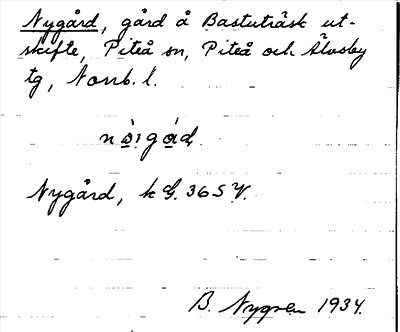 Nygård, gård å Bastuträsk ut-
skifte, Piteå sn, Piteå och Älvsby
tg, Norrb. l.
Nygård, k G. 36 S V.
B. Nygren 1934.